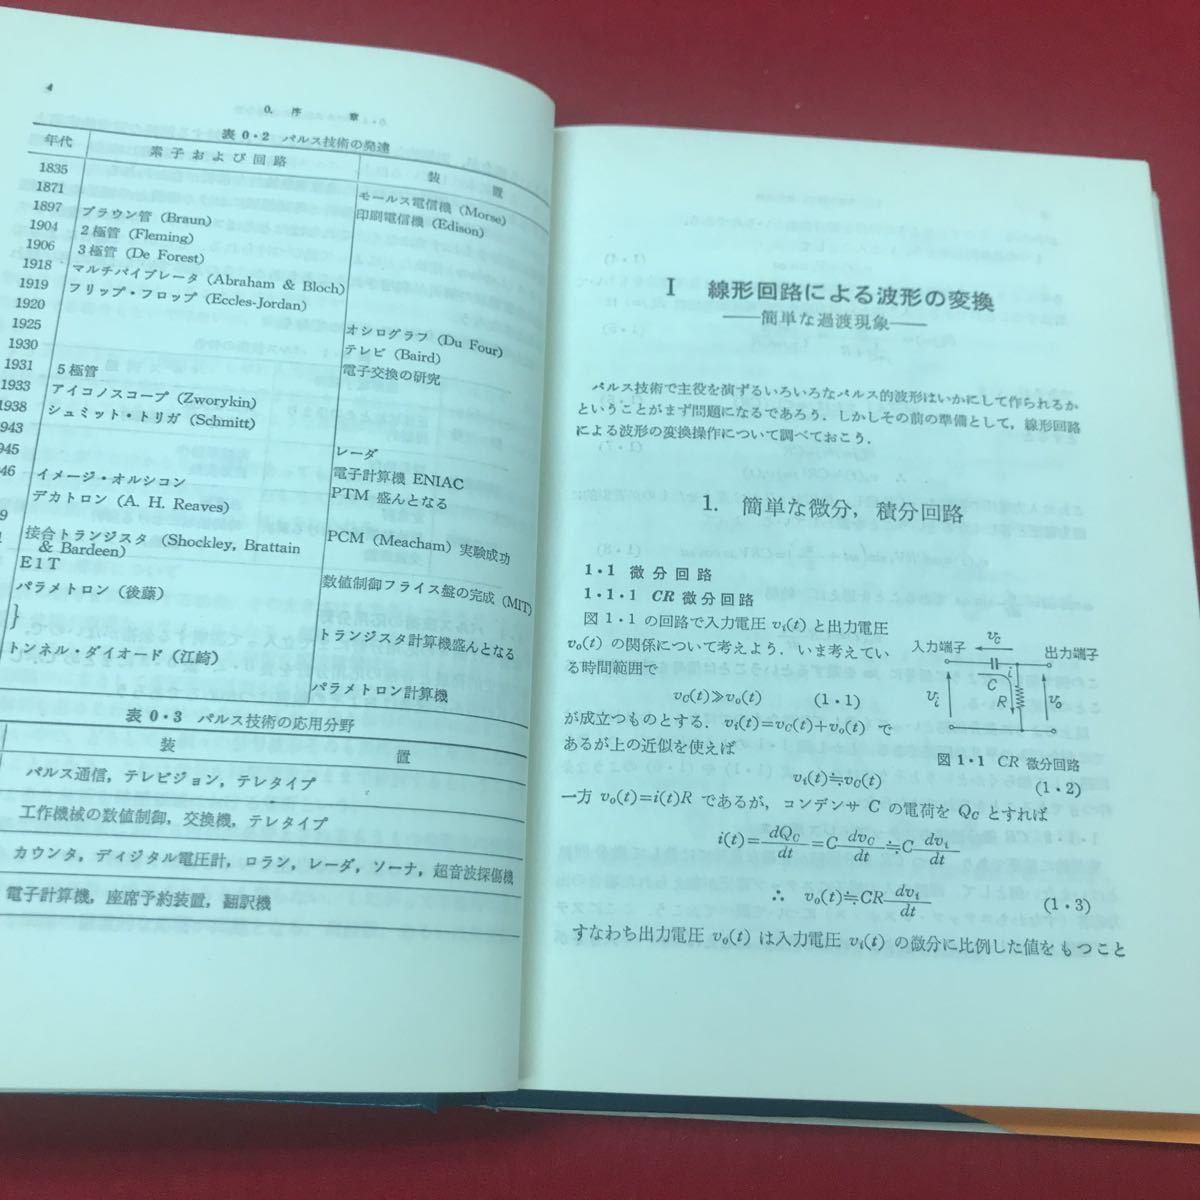 4
0. 序 章
表 0・2 パルス技術の発達
年代 素子および回路 装 置
1835 モールス電信機 (Morse)
1871 印刷電信機 (Edison)
1897 ブラウン管 (Braun)
1904 2極管 (Fleming)
1906 3極管 (De Forest)
1918 マルチバイブレータ (Abraham & Bloch)
1919 フリップ・フロップ (Eccles-Jordan)
1920 オシログラフ (Du Four)
1925 テレビ (Baird)
1930 電子交換の研究
1931 5極管
1933 アイコノスコープ (Zworykin)
1938 シュミット・トリガ (Schmitt)
943 レーダ
945 電子計算機 ENIAC
46 イメージ・オルシコン PTM 盛んとなる
デカトロン (A. H. Reaves)
9 接合トランジスタ (Shockley, Brattain & Bardeen) PCM (Meacham) 実験成功
E1T
パラメトロン (後藤) 数値制御フライス盤の完成 (MIT)
トランジスタ計算機盛んとなる
トンネル・ダイオード (江崎)
パラメトロン計算機
表 0・3 パルス技術の応用分野
装 置
パルス通信, テレビジョン, テレタイプ
工作機械の数値制御, 交換機, テレタイプ
カウンタ, ディジタル電圧計, ロラン, レーダ, ソーナ, 超音波探傷機
電子計算機, 座席予約装置, 翻訳機
I 線形回路による波形の変換
——簡単な過渡現象——
パルス技術で主役を演ずるいろいろなパルス的波形はいかにして作られるか
ということがまず問題になるであろう. しかしその前の準備として, 線形回路
による波形の変換操作について調べておこう.
1. 簡単な微分, 積分回路
1・1 微分回路
1・1・1 CR 微分回路
図 1・1 の回路で入力電圧 vi(t) と出力電圧
vo(t) の関係について考えよう. いま考えてい
る時間範囲で
vC(t)≫vo(t) (1・1)
が成立つものとする. vi(t)=vC(t)+vo(t) で
あるが上の近似を使えば
vi(t)≒vC(t) (1・2)
入力端子 vC 出力端子
vi C i R vo
図 1・1 CR 微分回路
一方 vo(t)=i(t)R であるが, コンデンサ C の電荷を QC とすれば
i(t)=dQC/dt=C dvC/dt≒C dvi/dt
∴ vo(t)≒CR dvi/dt (1・3)
すなわち出力電圧 vo(t) は入力電圧 vi(t) の微分に比例した値をもつこと